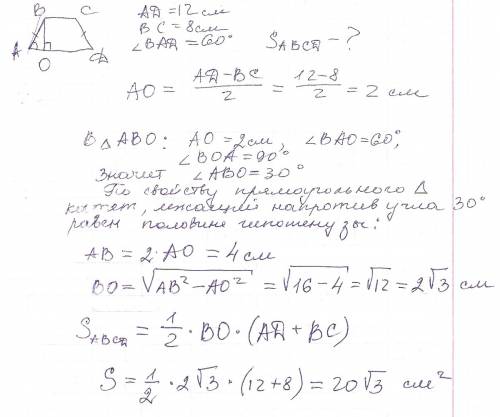 B C
A D
O
AD = 12 см
BC = 8 см
∠BAD = 60°
S_ABCD - ?
AO = (AD - BC)/2 = (12 - 8)/2 = 2 см
В △ ABO: AO = 2 см, ∠BAO = 60°,
∠BOA = 90°
Значит ∠ABO = 30°
По свойству прямоугольного △
катет, лежащий напротив угла 30°
равен половине гипотенузы:
AB = 2·AO = 4 см
BO = √(AB² - AO²) = √(16 - 4) = √12 = 2√3 см
S_ABCD = 1/2 · BO · (AD + BC)
S = 1/2 · 2√3 · (12 + 8) = 20√3 см²